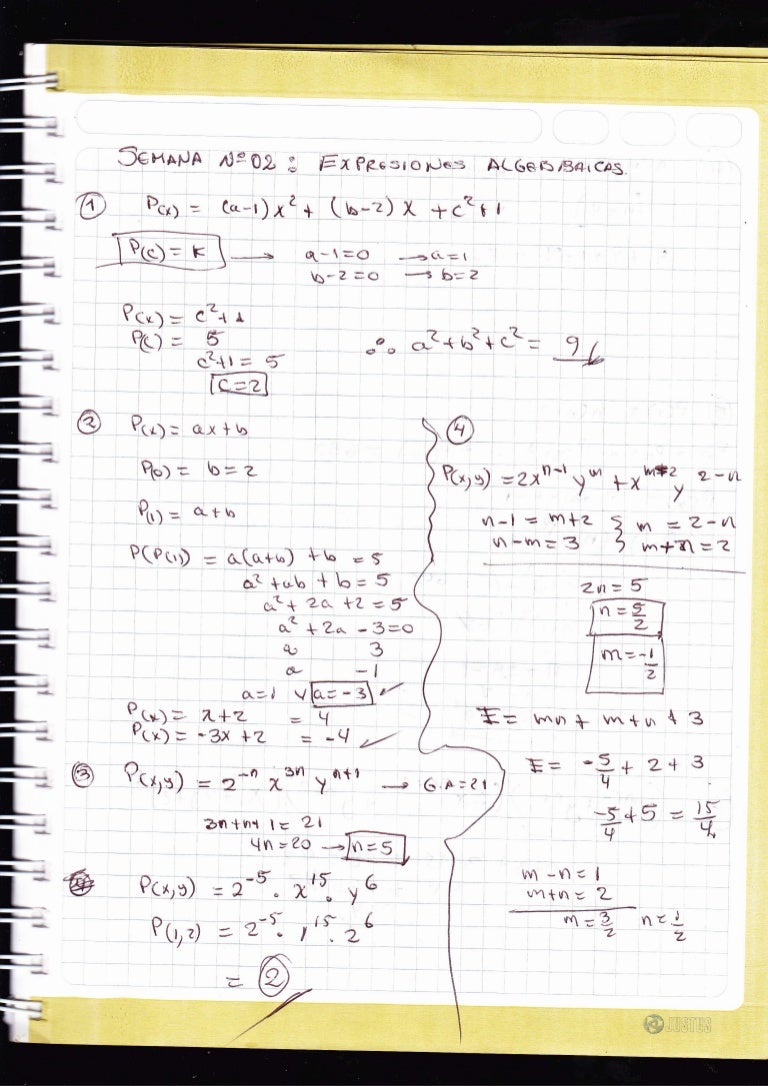 SEMANA Nº02: EXPRESIONES ALGEBRAICAS.
① P(x) = (a-1)x² + (b-2)x + c²+1
P(c) = K → a-1=0 → a=1
b-2=0 → b=2
P(x) = c²+1
P(c) = 5
c²+1 = 5
c=2
∴ a²+b²+c² = 9
② P(x) = ax+b
P(0) = b=2
P(1) = a+b
P(P(1)) = a(a+b) + b = 5
a²+ab+b = 5
a²+2a+2 = 5
a²+2a-3=0
a 3
a -1
a=1 ∨ a=-3
P(x) = x+2 = 4
P(x) = -3x+2 = -4
③ P(x,y) = 2⁻ⁿ x³ⁿ yⁿ⁺¹ → G.A=21
3n+n+1 = 21
4n=20 → n=5
P(x,y) = 2⁻⁵ . x¹⁵ . y⁶
P(1,2) = 2⁻⁵ . 1¹⁵ . 2⁶
= ②
④
P(x,y) = 2xⁿ⁻¹ yᵐ + xᵐ⁺² y²⁻ⁿ
n-1 = m+2 } m = 2-n
n-m = 3 } m+n = 2
2n = 5
n = 5/2
m = -1/2
E = mn + m+n + 3
E = -5/4 + 2 + 3
-5/4 + 5 = 15/4
m-n = 1
m+n = 2
m = 3/2 n = 1/2
JUSTUS